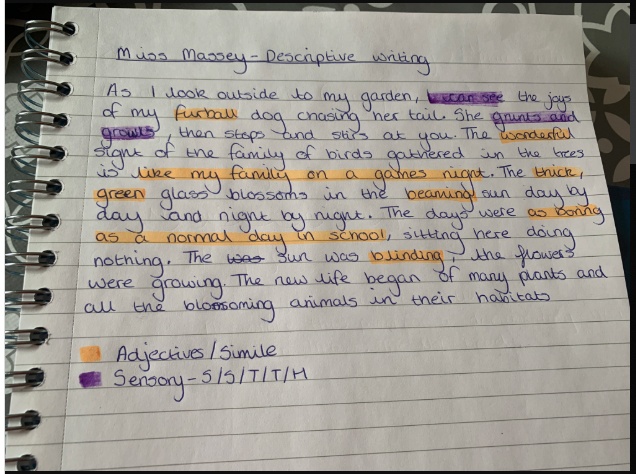 Miss Massey - Descriptive writing
As I look outside to my garden, I can see the joys
of my furball dog chasing her tail. She grunts and
growls, then stops and stirs at you. The wonderful
signt of the family of birds gathered in the trees
is like my family on a games night. The thick,
green glass blossoms in the beaning sun day by
day and night by night. The days were as boring
as a normal day in school, sitting here doing
nothing. The was sun was blinding, the flowers
were growing. The new life began of many plants and
all the blossoming animals in their habitats
Adjectives/Simile
Sensory - S/S/T/T/H